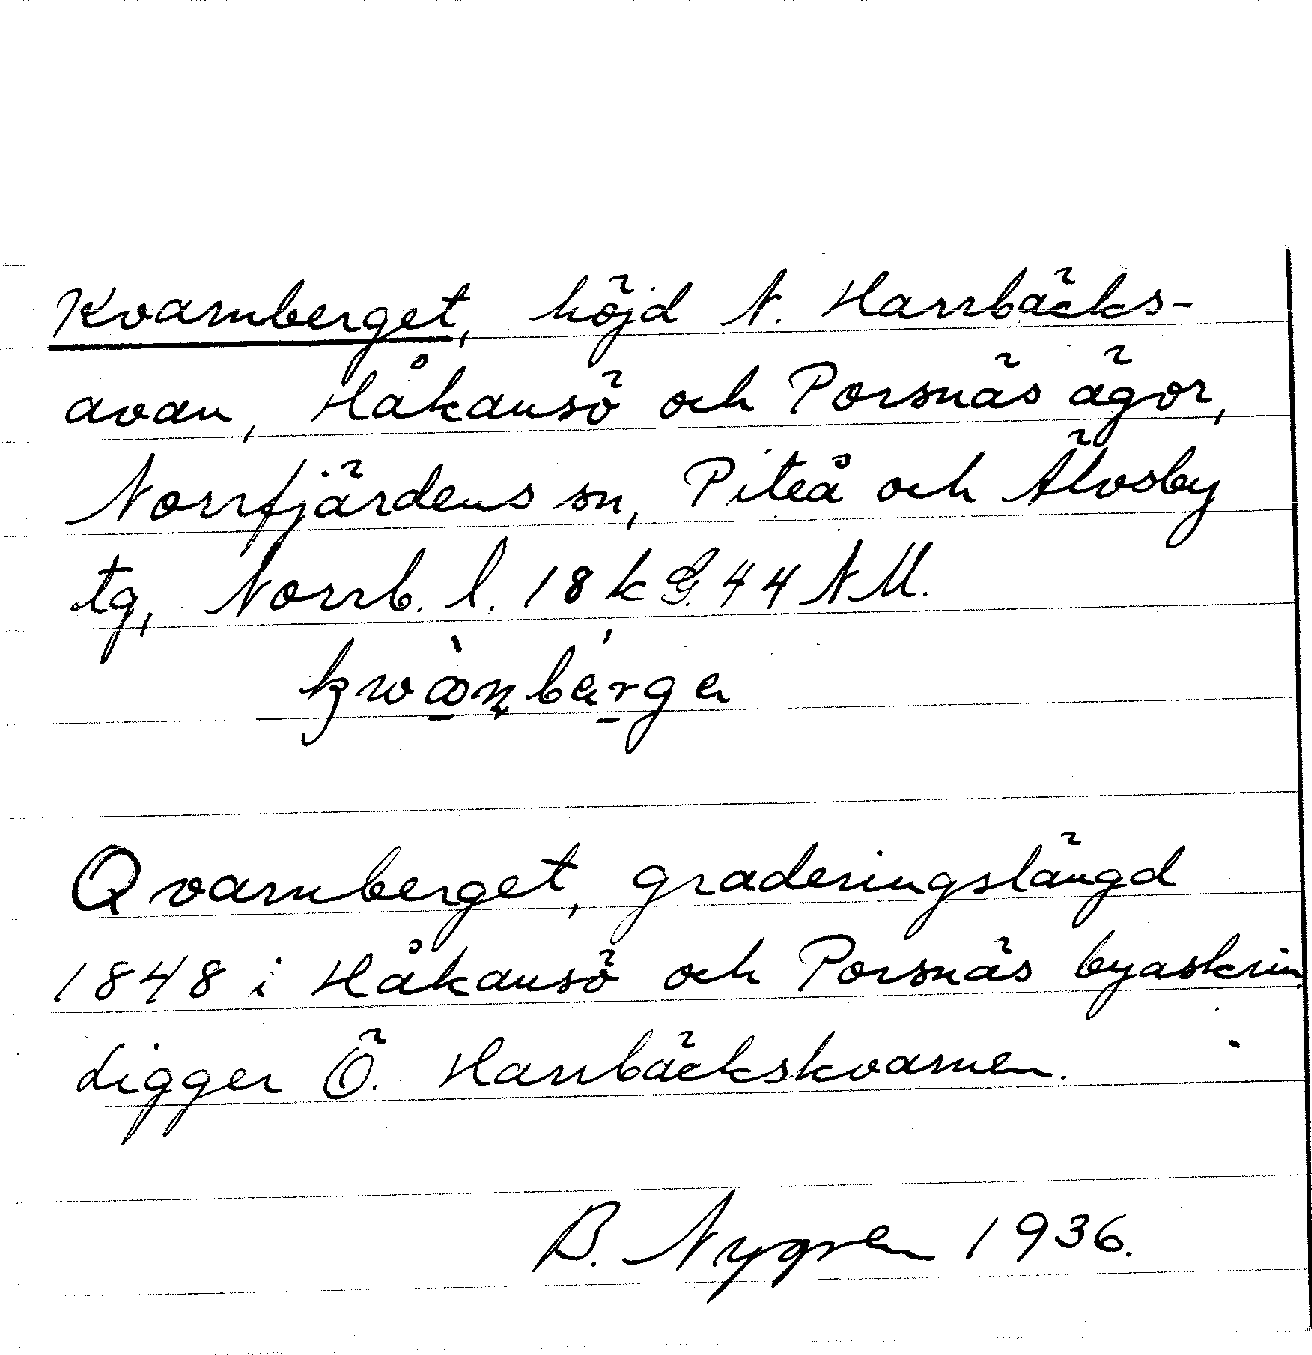 Kvarnberget, höjd N. Harrbäcks-
avan, Håkansö och Porsnäs ägor,
Norrfjärdens sn, Piteå och Älvsby
tg, Norrb. l. 18 k G. 44 N M.

Qvarnberget, graderingslängd
1848 i Håkansö och Porsnäs byaskrin
Ligger Ö. Harrbäckskvarnen.
B. Nygren 1936.